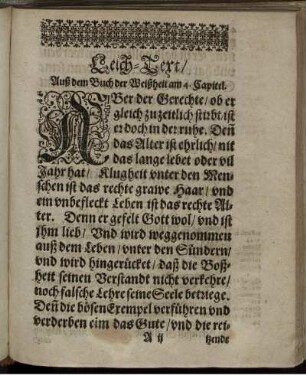 Leich-Text/
Auß dem Buch der Weißheit am 4. Capitel.
ABer der Gerechte/ ob er
gleich zu zeitlich stirbt/ ist
er doch in der ruhe. Deñ
das Alter ist ehrlich/ nit
das lange lebet oder vil
Jahr hat/ Klugheit vnter den Men-
schen ist das rechte grawe Haar/ vnd
ein vnbefleckt Leben ist das rechte Al-
ter. Denn er gefelt Gott wol/ vnd ist
jhm lieb/ Vnd wird weggenommen
auß dem Leben/ vnter den Sündern/
vnd wird hingerücket/ daß die Boß-
heit seinen Verstandt nicht verkehre/
noch falsche Lehre seine Seele betriege.
Deñ die bösen Exempel verführen vnd
verderben eim das Gute/ vnd die rei-
A ij
tzende